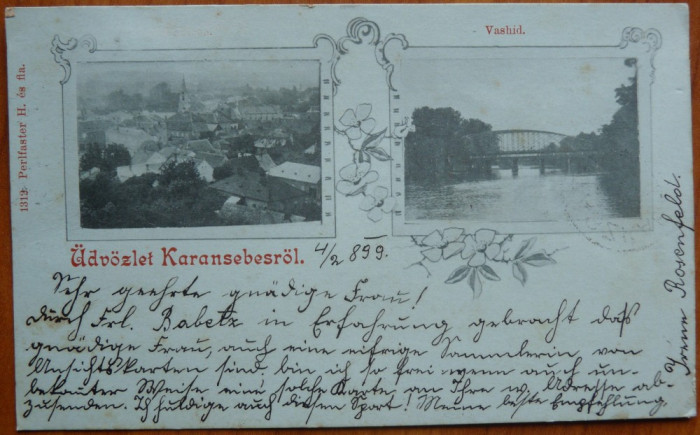 Vashid.
1319. Perlfaster H. és fia.
Üdvözlet Karansebesröl. 4/2 899.
Sehr geehrte gnädige Frau!
Durch Frl. Babetz in Erfahrung gebracht daß
gnädige Frau, auch eine eifrige Sammlerin, von
Ansichtskarten sind, bin ich so frei wenn auch un-
bekannter Weise eine solche Karte an Ihre w. Adresse ab-
zusenden. Ich huldige auch diesen Sport! Meine beste Empfehlung.
Rosenfeld